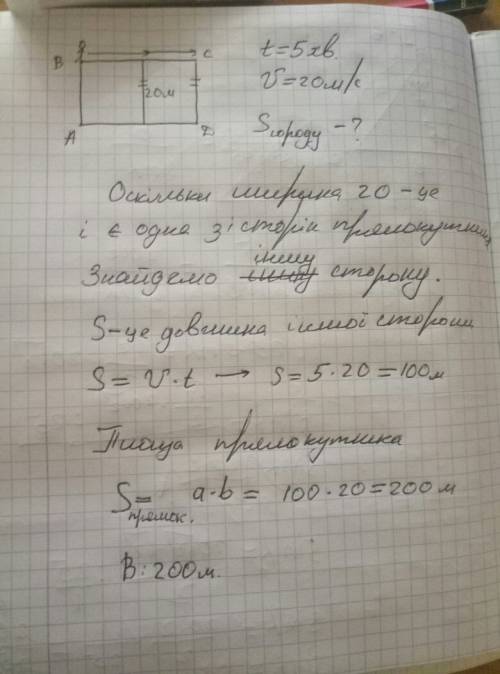 B C
20м
A D
t=5хв.
V=20м/с
Sгороду -?
Оскільки ширина 20 - це
і є одна зі сторін прямокутника
іншу
Знайдемо сторону.
S - це довжина іншої сторони
S= V·t → S= 5·20=100м
Площа прямокутника
S= a·b= 100·20=200м
прямок.
В: 200м.